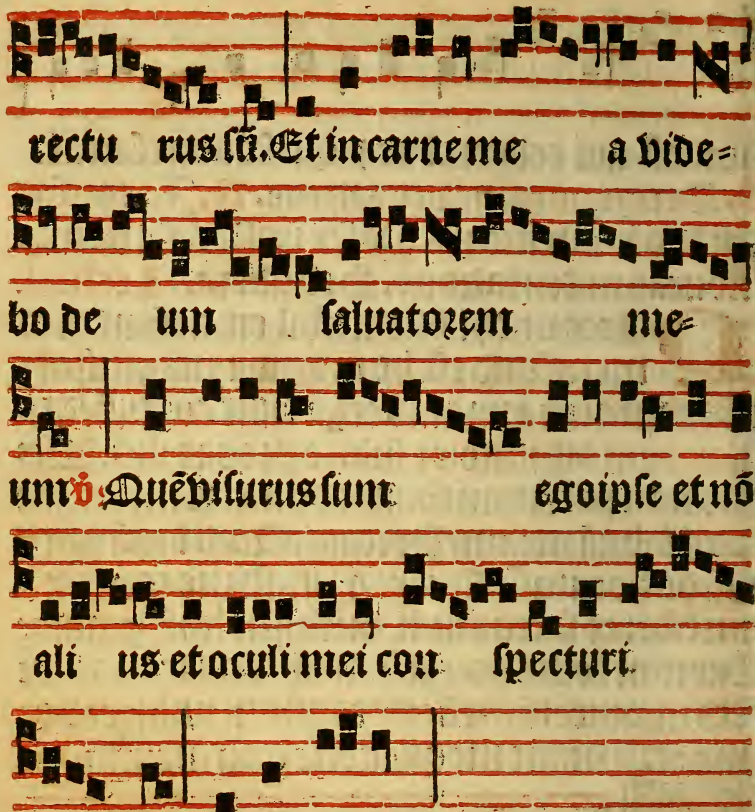 rectu rus sū. Et in carne me a vide=
bo de um saluatorem me=
um v̇. Quē visurus sum ego ipse et nō
ali us et oculi mei con specturi.